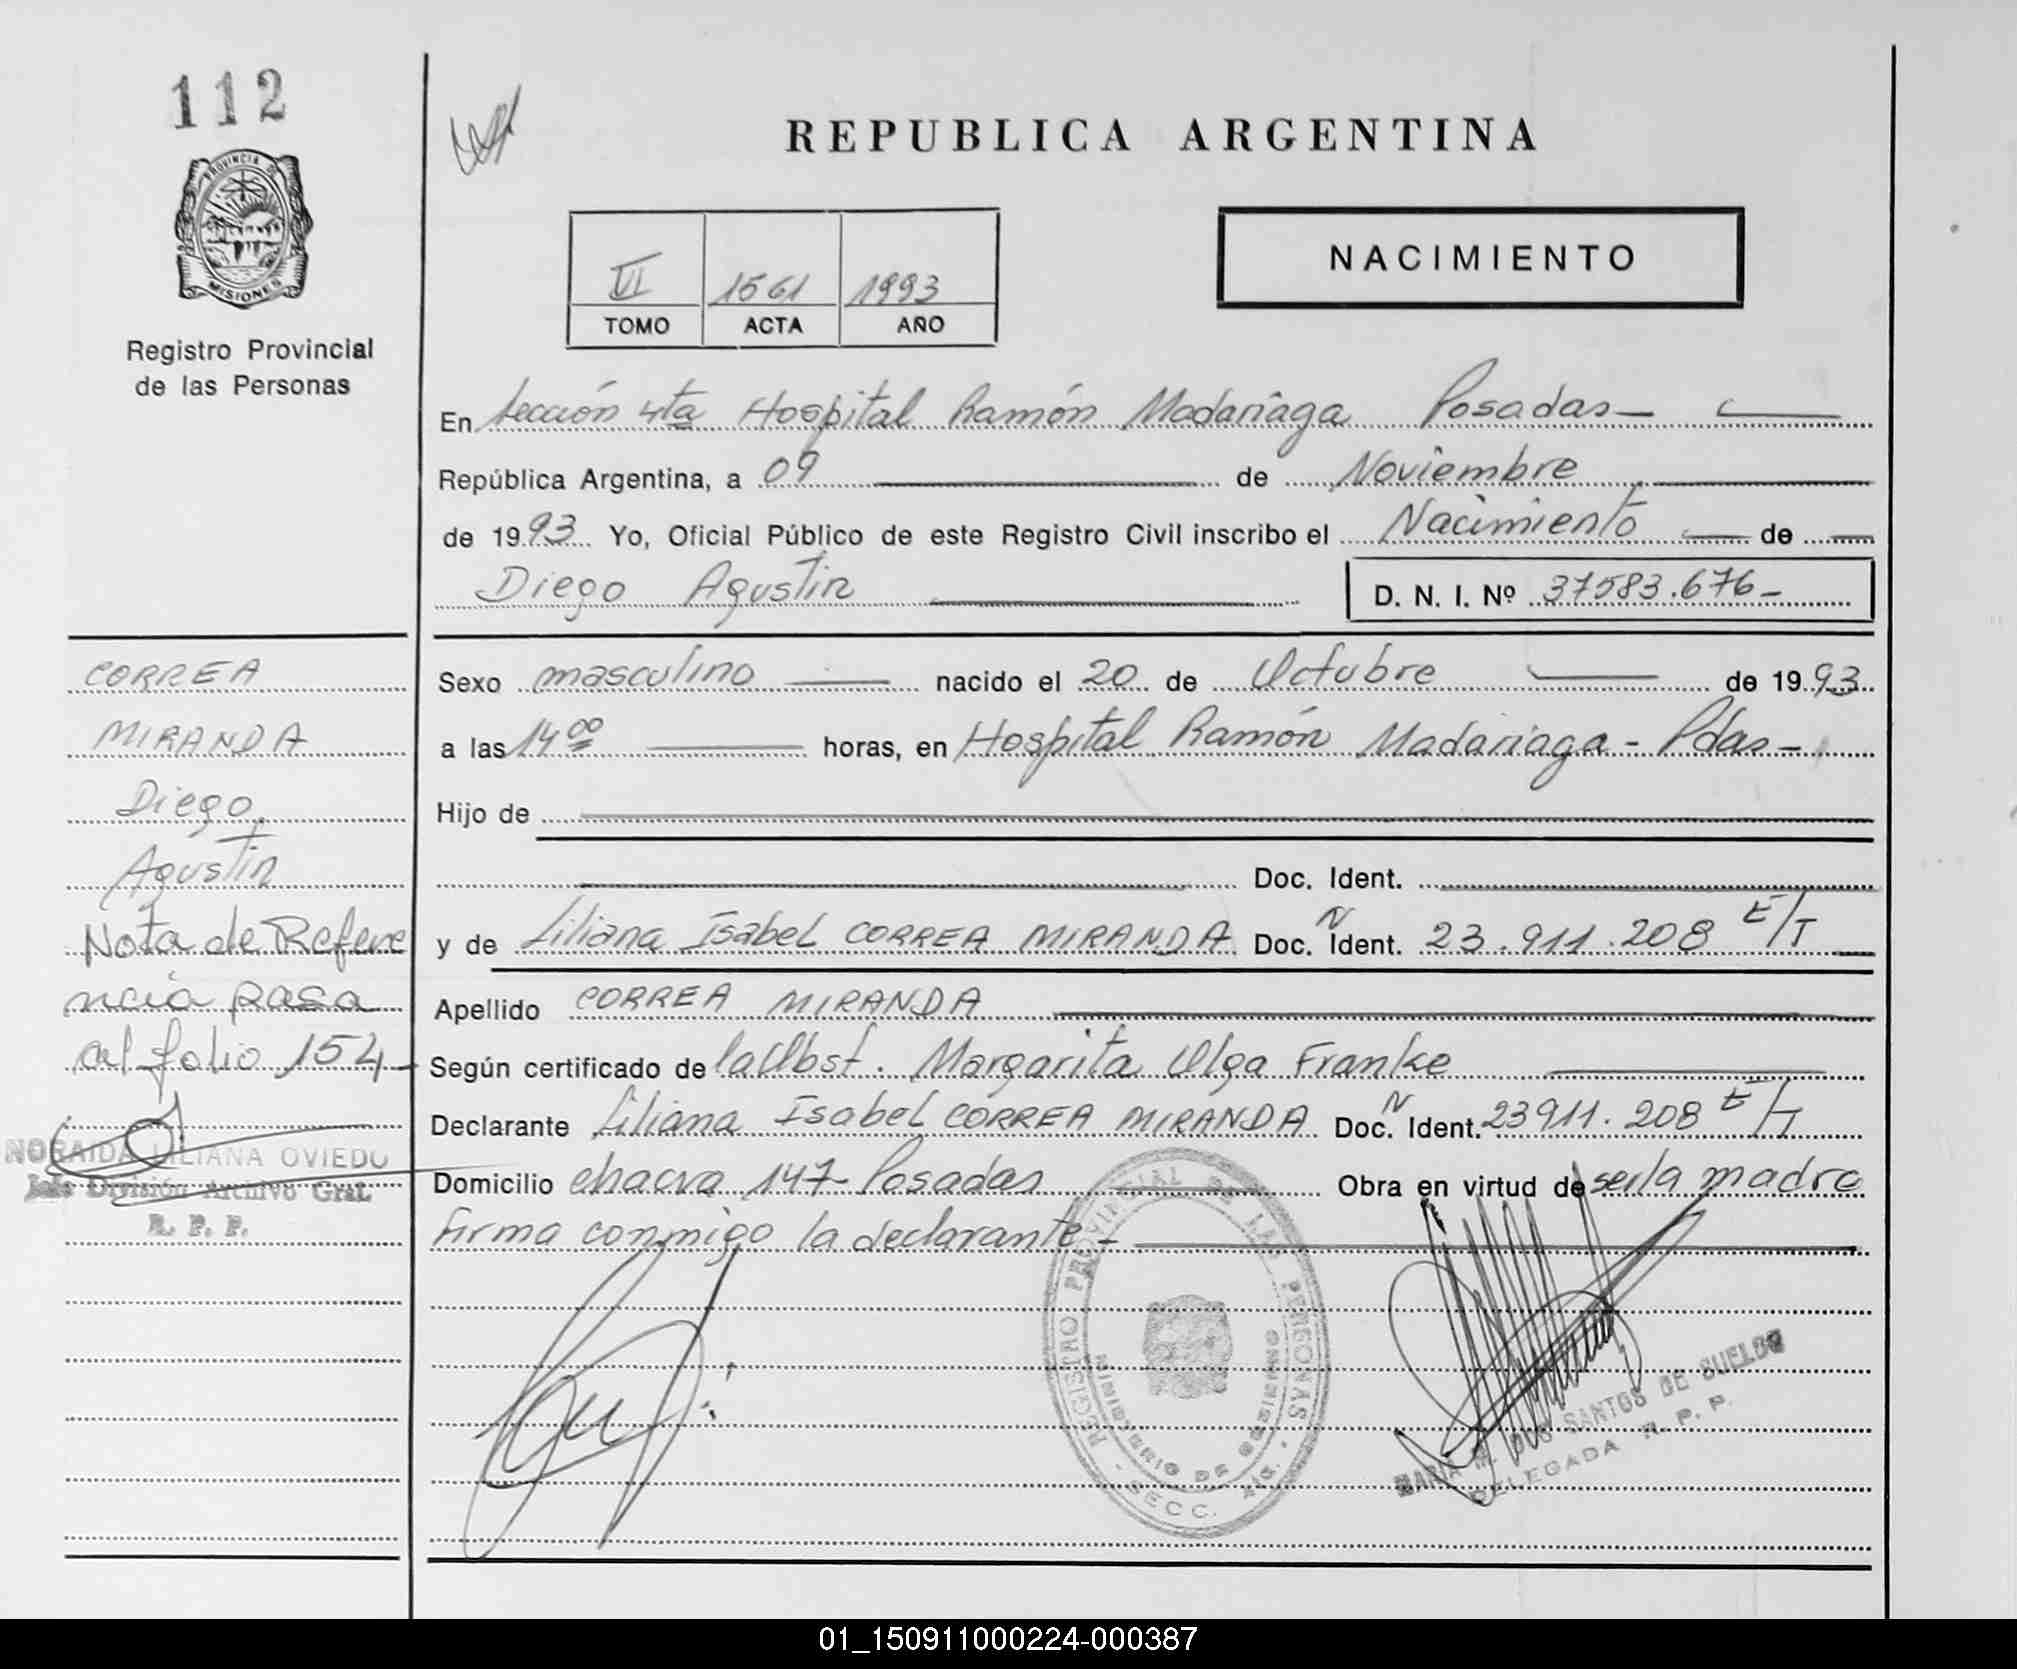 112
PROVINCIA DE
MISIONES
Registro Provincial
de las Personas
REPUBLICA ARGENTINA
NACIMIENTO
VI 1561 1993
TOMO ACTA AÑO
En Sección 4ta Hospital Ramón Madariaga Posadas—
República Argentina, a 09 de Noviembre
de 1993 Yo, Oficial Público de este Registro Civil inscribo el Nacimiento de
Diego Agustin D. N. I. Nº 37583.676-
Sexo masculino nacido el 20 de Octubre de 1993
a las 14 00 horas, en Hospital Ramón Madariaga - Pdas-
Hijo de
Doc. Ident.
y de Liliana Isabel CORREA MIRANDA Doc. N Ident. 23.911.208 E/T
Apellido CORREA MIRANDA
Según certificado de la Obst. Margarita Olga Franke
Declarante Liliana Isabel CORREA MIRANDA Doc. N Ident. 23911.208 E/T
Domicilio chacra 147- Posadas Obra en virtud de ser la madre
firma conmigo la declarante-
CORREA
MIRANDA
Diego
Agustin
Nota de Refere
ncia pasa
al folio 154-
NORAIDA LILIANA OVIEDO
Jefe División Archivo Gral.
R. P. P.
REGISTRO PROVINCIAL DE LAS PERSONAS
MINISTERIO DE GOBIERNO
SECC.
MARIA M. DOS SANTOS DE SUELDO
DELEGADA R. P. P.
01_150911000224-000387